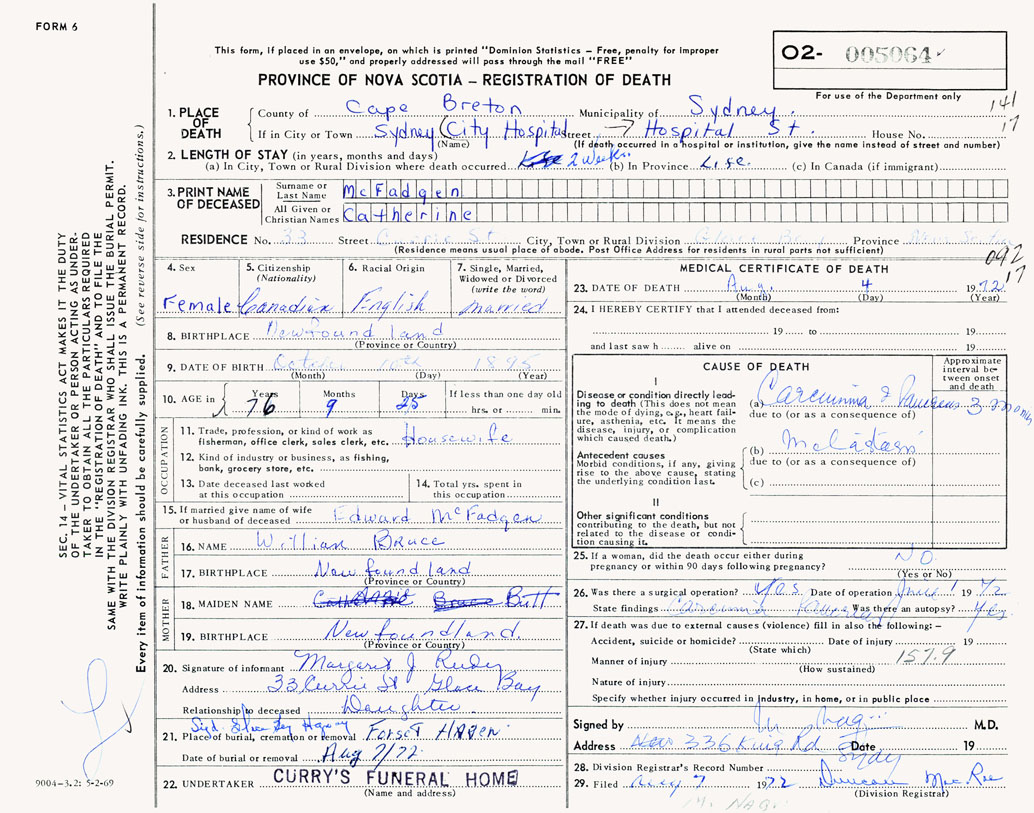 FORM 6
This form, if placed in an envelope, on which is printed "Dominion Statistics – Free, penalty for improper
use $50," and properly addressed will pass through the mail "FREE"
PROVINCE OF NOVA SCOTIA – REGISTRATION OF DEATH
O2- 005064
For use of the Department only
141
17
1. PLACE OF DEATH
County of Cape Breton Municipality of Sydney.
If in City or Town Sydney (City Hospital Street → Hospital St. House No.
(Name) (If death occurred in a hospital or institution, give the name instead of street and number)
2. LENGTH OF STAY (in years, months and days)
(a) In City, Town or Rural Division where death occurred 2 weeks. (b) In Province Life. (c) In Canada (if immigrant)
3. PRINT NAME OF DECEASED
Surname or Last Name McFadgen
All Given or Christian Names Catherine
RESIDENCE No. 33 Street Currie St City, Town or Rural Division Glace Bay Province Nova Scotia
(Residence means usual place of abode. Post Office Address for residents in rural parts not sufficient)
092
17
4. Sex Female
5. Citizenship (Nationality) Canadian
6. Racial Origin English
7. Single, Married, Widowed or Divorced (write the word) Married
8. BIRTHPLACE Newfoundland
(Province or Country)
9. DATE OF BIRTH October 10th 1895
(Month) (Day) (Year)
10. AGE in Years 76 Months 9 Days 25 If less than one day old hrs. or min.
OCCUPATION
11. Trade, profession, or kind of work as fisherman, office clerk, sales clerk, etc. Housewife
12. Kind of industry or business, as fishing, bank, grocery store, etc.
13. Date deceased last worked at this occupation
14. Total yrs. spent in this occupation
15. If married give name of wife or husband of deceased Edward McFadgen
FATHER
16. NAME William Bruce
17. BIRTHPLACE Newfoundland
(Province or Country)
MOTHER
18. MAIDEN NAME Butt
19. BIRTHPLACE Newfoundland.
(Province or Country)
20. Signature of informant Margaret J. Rudy
Address 33 Currie St Glace Bay
Relationship to deceased Daughter
Syd. Glace Bay
21. Place of burial, cremation or removal Forset Haven
Date of burial or removal Aug 7/72
22. UNDERTAKER CURRY'S FUNERAL HOME
(Name and address)
MEDICAL CERTIFICATE OF DEATH
23. DATE OF DEATH Aug. 4 1972
(Month) (Day) (Year)
24. I HEREBY CERTIFY that I attended deceased from:
19 to 19
and last saw h alive on 19
CAUSE OF DEATH
Approximate interval between onset and death
I
Disease or condition directly leading to death (This does not mean the mode of dying, e.g., heart failure, asthenia, etc. It means the disease, injury, or complication which caused death.)
(a) Carcinoma 3 months
due to (or as a consequence of)
Antecedent causes
Morbid conditions, if any, giving rise to the above cause, stating the underlying condition last.
(b)
due to (or as a consequence of)
(c)
II
Other significant conditions contributing to the death, but not related to the disease or condition causing it.
25. If a woman, did the death occur either during pregnancy or within 90 days following pregnancy? No
(Yes or No)
26. Was there a surgical operation? Yes Date of operation June 1 1972
State findings Carcinoma Was there an autopsy? Yes
27. If death was due to external causes (violence) fill in also the following: –
Accident, suicide or homicide? Date of injury 19
(State which)
157.9
Manner of injury
(How sustained)
Nature of injury
Specify whether injury occurred in industry, in home, or in public place
Signed by M. Naqvi M.D.
Address 336 King Rd Date 19
Sydney
28. Division Registrar's Record Number
29. Filed Aug 7 1972 Duncan MacRae
(Division Registrar)
M. NAQVI
SEC. 14 – VITAL STATISTICS ACT MAKES IT THE DUTY
OF THE UNDERTAKER OR PERSON ACTING AS UNDERTAKER
TO OBTAIN ALL THE PARTICULARS REQUIRED
IN THE "REGISTRATION OF DEATH" AND FILE THE
SAME WITH THE DIVISION REGISTRAR WHO SHALL ISSUE THE BURIAL PERMIT.
WRITE PLAINLY WITH UNFADING INK. THIS IS A PERMANENT RECORD.
Every item of information should be carefully supplied. (See reverse side for instructions.)
9004–3.2: 5-2-69